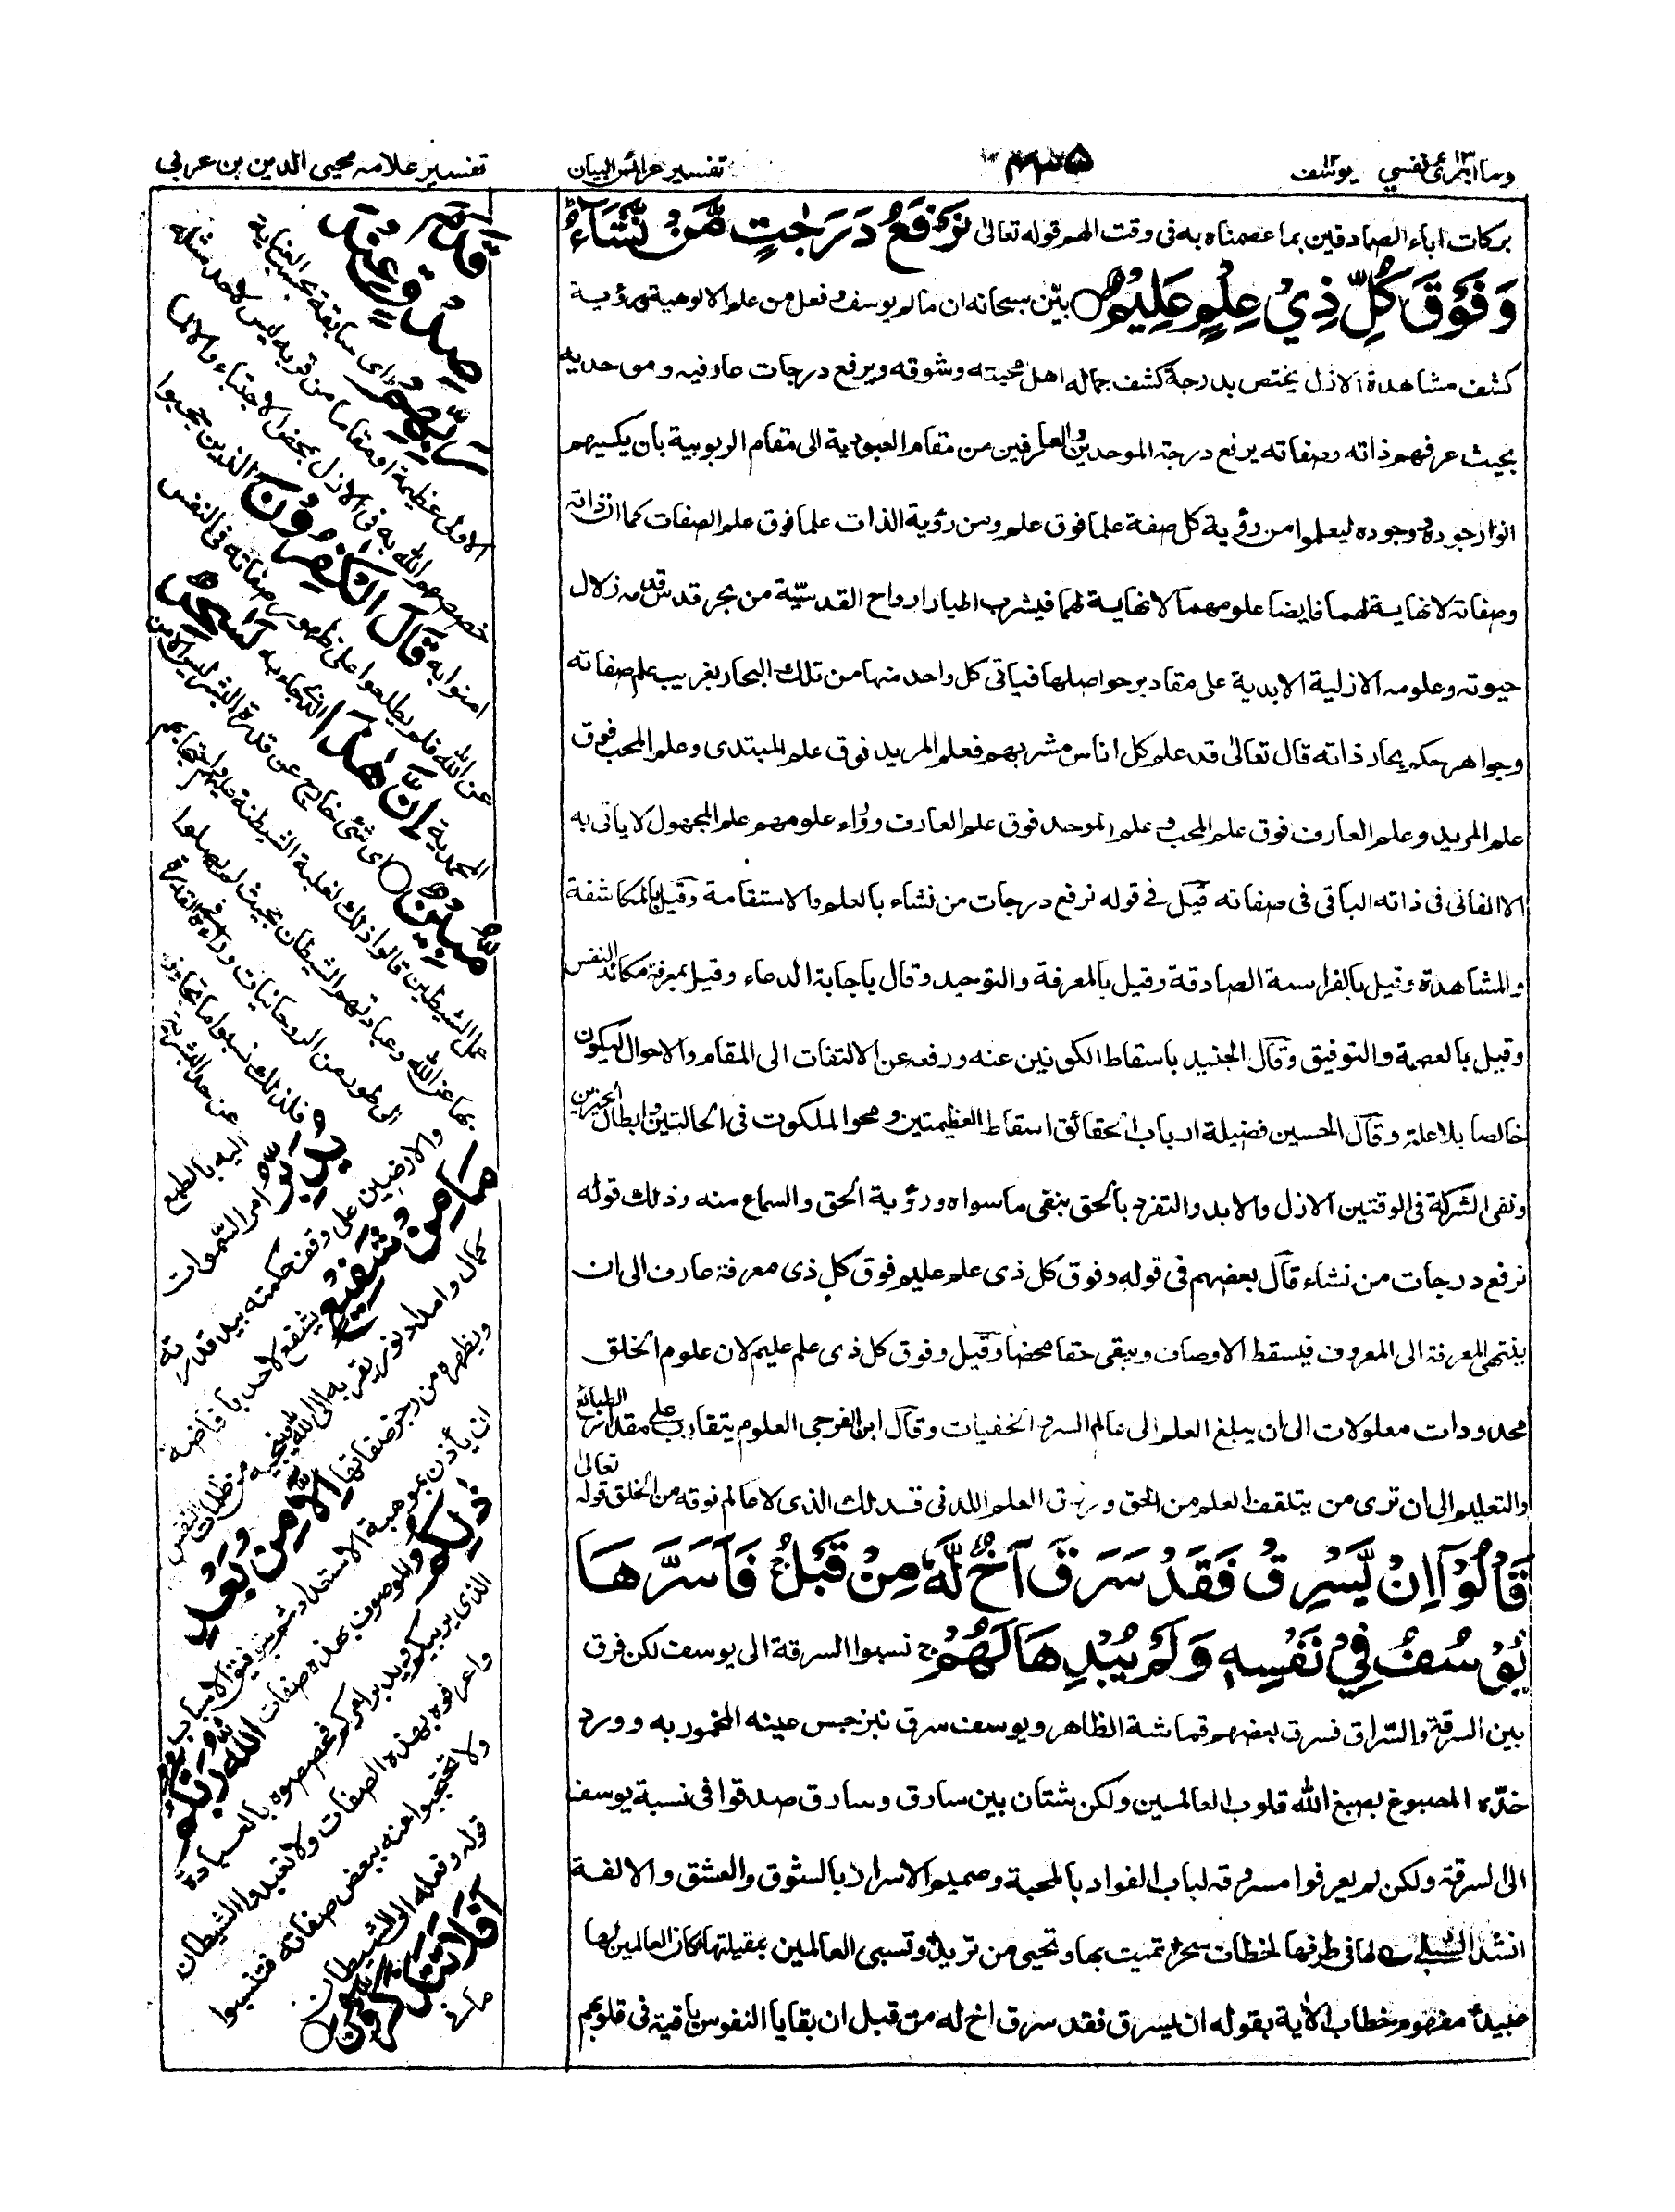 وما ابرئ نفسي ١٣ يوسف ١٢
٤٣٥
تفسير عرائس البيان
تفسير علامه محيى الدين بن عربي
بركات اباء الصادقين بما عصمناه به فى وقت الهم قوله تعالى نَرْفَعُ دَرَجٰتٍ مَّنْ نَّشَآءُ
وَفَوْقَ كُلِّ ذِيْ عِلْمٍ عَلِيْمٌ بيّن سبحانه ان ما لم يوسف وفعل من علم الالوهية ورؤية
كشف مشاهدة الازل يختص بدرجة كشف جماله اهل محبته وشوقه ويرفع درجات عارفيه وموحديه
بحيث عرفهم ذاته وصفاته يرفع درجة الموحدين والعارفين من مقام العبودية الى مقام الربوبية بان يكسيهم
انوار جوده ووجوده ليعلموا من رؤية كل صفة علما فوق علم ومن رؤية الذات علما فوق علم الصفات كما ان ذاته
وصفاته لا نهاية لهما فايضا علومهما لا نهاية لهما فيشرب اطيار ارواح القدسيّة من بحر قدس قدمه زلال
حيوته وعلومه الازلية الابدية على مقادير حواصلها فياتى كل واحد منها من تلك البحار بغريب علم صفاته
وجواهر حكم بحار ذاته قال تعالى قد علم كل اناس مشربهم فعلم المريد فوق علم المبتدى وعلم المحب فوق
علم المريد وعلم العارف فوق علم المحب وعلم الموحد فوق علم العارف ووراء علومهم علم المجهول لا ياتى به
الا الفانى فى ذاته الباقى فى صفاته قيل فى قوله نرفع درجات من نشاء بالعلم والاستقامة وقيل بالمكاشفة
والمشاهدة وقيل بالفراسة الصادقة وقيل بالمعرفة والتوحيد وقال باجابة الدعاء وقيل بمعرفة مكائد النفس
وقيل بالعصمة والتوفيق وقال الجنيد باسقاط الكونين عنه ورفعه عن الالتفات الى المقام والاحوال ليكون
خالصا بلا علة وقال الحسين فضيلة ارباب الحقائق اسقاط العظيمتين ومحو الملكوت فى الحالتين وابطال الخيرين
ونفى الشركة فى الوقتين الازل والابد والتفرد بالحق بنفى ما سواه ورؤية الحق والسماع منه وذلك قوله
نرفع درجات من نشاء قال بعضهم فى قوله وفوق كل ذى علم عليم فوق كل ذى معرفة عارف الى ان
ينتهى المعرفة الى المعروف فيسقط الاوصاف ويبقى حقا محضا وقيل وفوق كل ذى علم عليم لان علوم الخلق
محدودات معلولات الى ان يبلغ العلم الى عالم السر والخفيات وقال ابن الفرجى العلوم يتقارب على مقدار الطبائع
والتعليم الى ان ترى من يتلقف العلم من الحق ورزق العلم اللدنى فذلك الذى لا عالم فوقه من الخلق قوله تعالى
قَالُوْٓا اِنْ يَّسْرِقْ فَقَدْ سَرَقَ اَخٌ لَّهٗ مِنْ قَبْلُ فَاَسَرَّهَا
يُوْسُفُ فِيْ نَفْسِهٖ وَلَمْ يُبْدِهَا لَهُمْ نسبوا السرقة الى يوسف لكن فرق
بين السرقة والسّراق فسرق بعضهم قماشة الظاهر ويوسف سرق نبرجس عينه المخمور به وورد
خدّه المصبوغ بصبغ الله قلوب العالمين ولكن شتان بين سارق وسارق صدقوا فى نسبة يوسف
الى السرقة ولكن لم يعرفوا مسروقه لباب الفواد بالمحبة وصميم الاسرار بالشوق والعشق والالفة
انشد الشبلى لها فى طرفها لحظات سحر تميت بها وتحيى من تريد وتسبى العالمين بمقلتيها كان العالمين لها
عبيد مفهوم خطاب الاية بقوله ان يسرق فقد سرق اخ له من قبل ان بقايا النفوس باقية فى قلوبهم
قَدَمَ صِدْقٍ عِنْدَ
رَبِّهِمْ اى سابقة بحسب العناية
الاولى عظيمة او مقاما من قربه ليس لاحد مثله
خصصهم الله به فى الازل بمحض الاجتباء
امنوا به قَالَ الْكٰفِرُوْنَ الذين حجبوا
عن الله فلم يطلعوا على ظهور صفاته فى النفس
المحمدية اِنَّ هٰذَا الذى جاء به لَسِحْرٌ
مُّبِيْنٌ اى شئ خارج عن قدرة البشر ليس الا من
عمل الشيطين قالوا ذلك لغلبة الشيطنة عليهم واحتجابهم
بها عن الله وعبادتهم الشيطان بحيث لم يصلوا
الى طور من الروحانيات وراءه فى القدرة
فلذلك نسبوا ما تجاوز
عن حد البشرية
اليه بالطبع
يُدَبِّرُ امر السّموات
والارضين على وفق حكمته بيد قدرته
مَا مِنْ شَفِيْعٍ يشفع لاحد بافاضة
كمال وامداد نور يقربه الى الله وينجيه من ظلمات النفس
ويطهره من رجز صفاتها اِلَّا مِنْ بَعْدِ
ان يأذن بموهبة الاستعداد ثم توفيق الاسباب
ذٰلِكُمُ الموصوف بهذه صفات اللّٰهُ رَبُّكُمْ
الذى يربيكم ويدبر امركم فخصصوه بالعبادة
واعرفوه بهذه الصفات ولا تعبدوا الشيطان
ولا تحتجبوا عنه ببعض صفاته فتنسبوا
قوله وفعله الى الشيطان
اَفَلَا تَذَكَّرُوْنَ